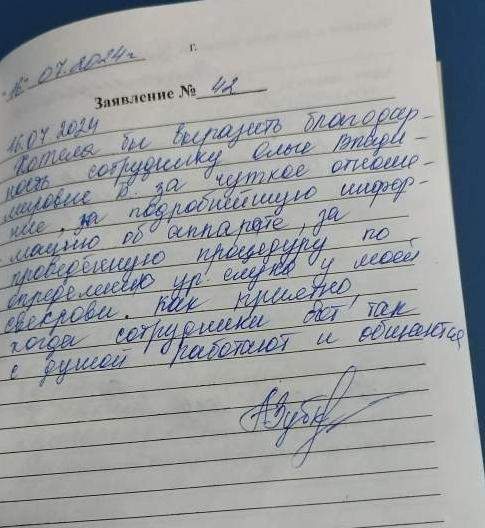 "16" 07.2024г г.
Заявление № 42
16.07 2024
Хотела бы выразить благодар-
ность сотруднику Ольге Влади-
мировне В. за чуткое отноше-
ние, за подробнейшую инфор-
мацию об аппарате, за
проведённую процедуру по
определению ур. слуха у моей
свекрови. Как приятно,
когда сотрудники вот так
с душой работают и общаются